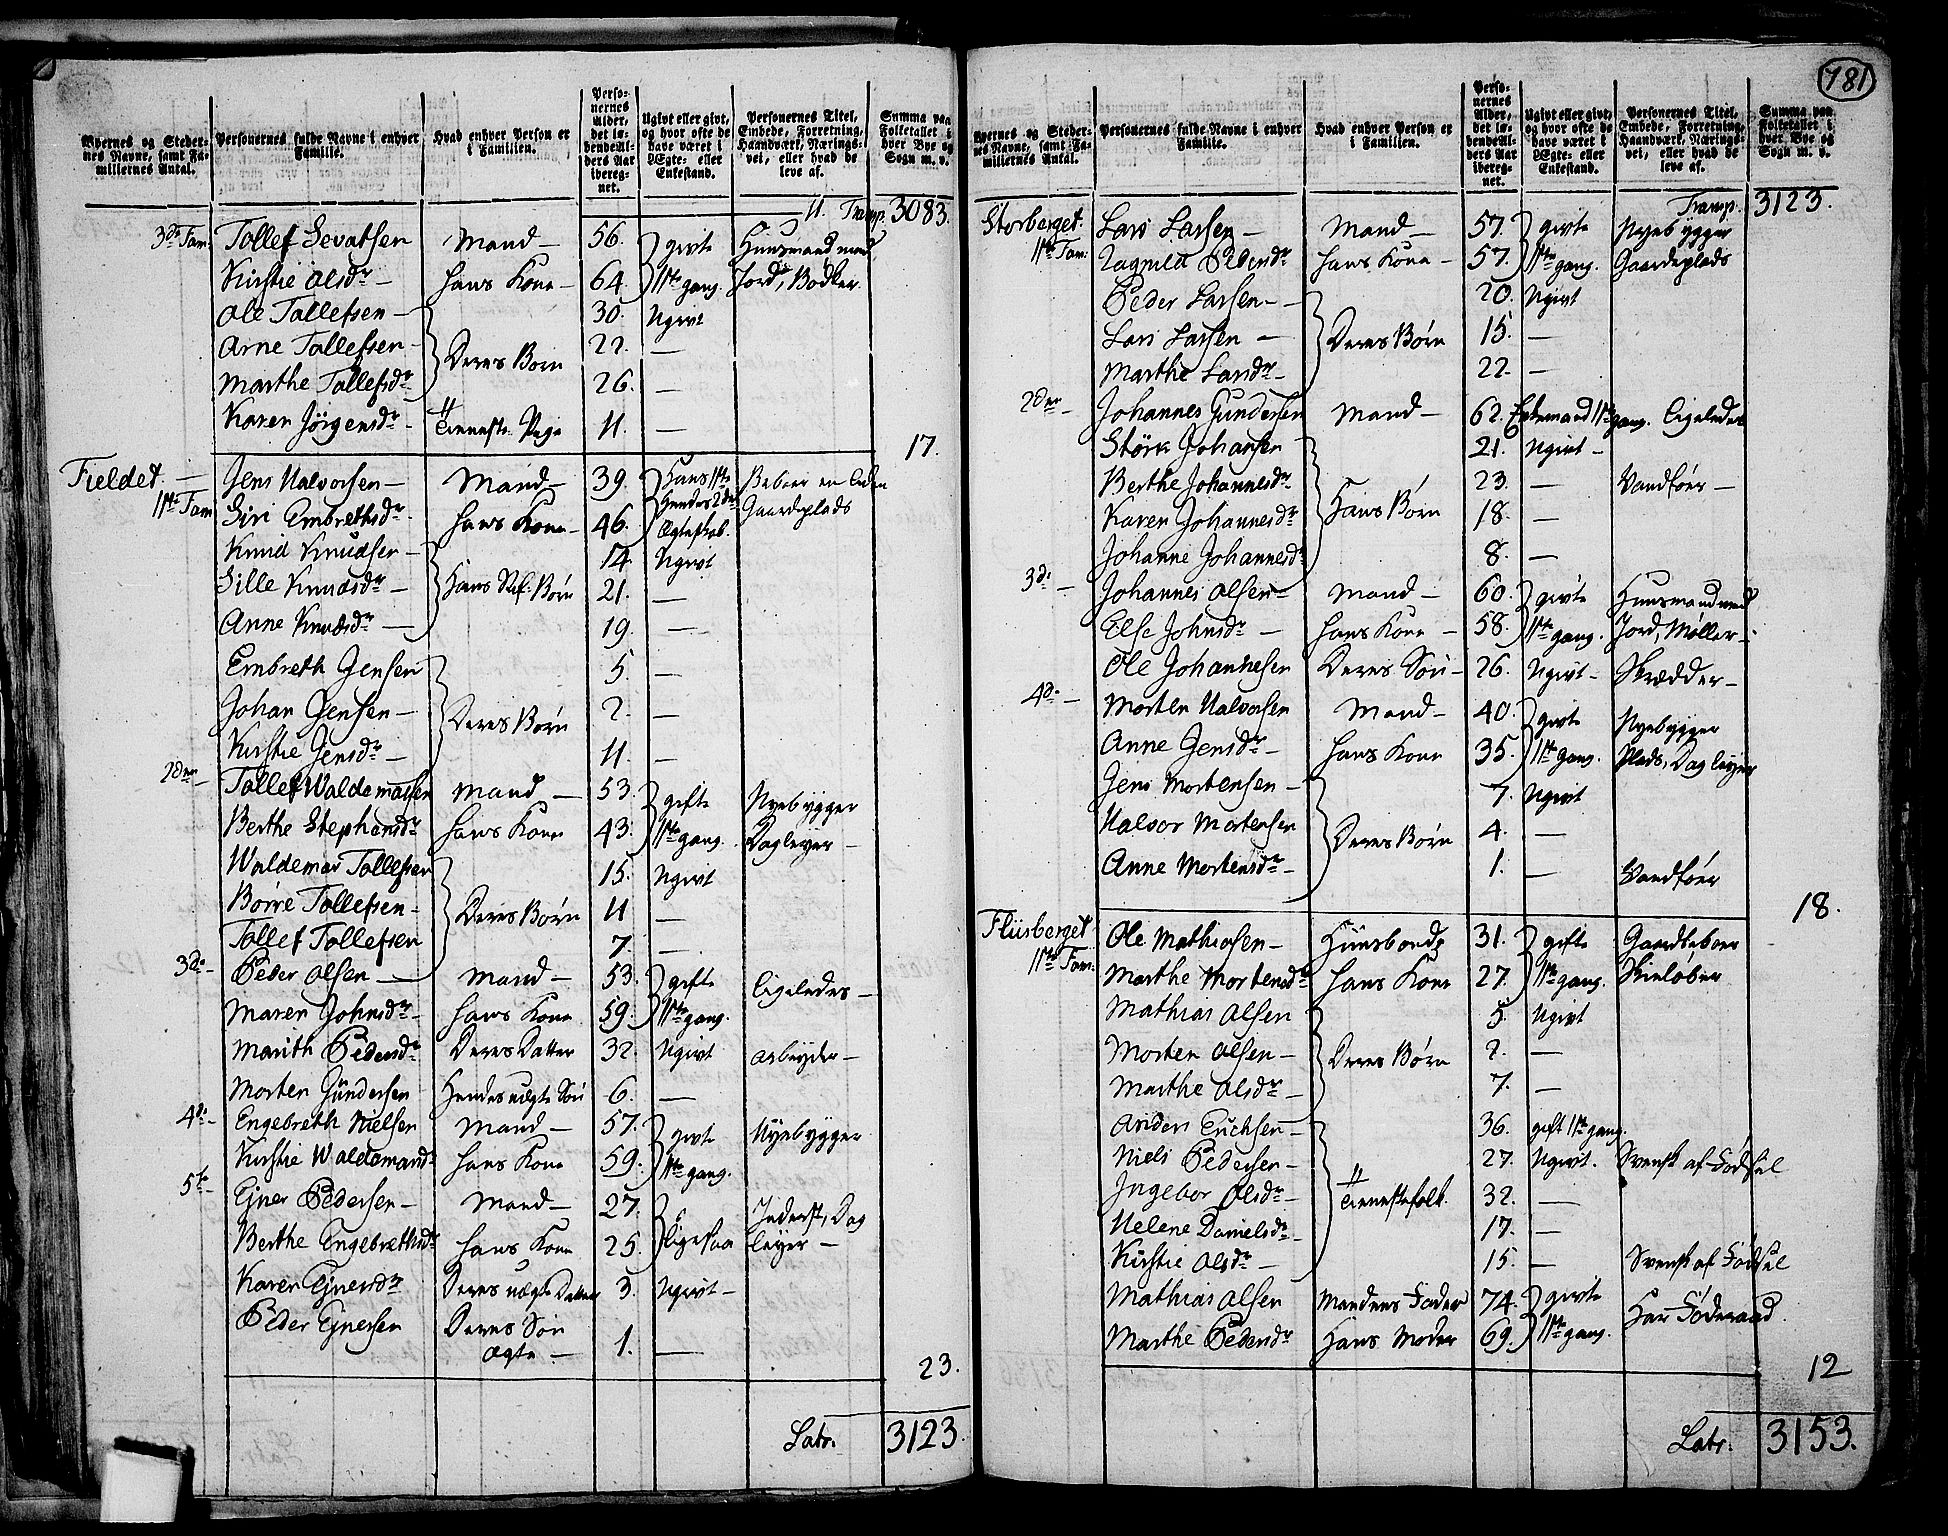 781
Byernes og Steder- nes Navne, samt Fa- miliernes Antal. Personernes fulde Navne i enhver Familie. Hvad enhver Person er i Familien. Perso- nernes Alder, det lø- bende Al- ders Aar ibereg- net. Ugivt eller givt, og hvor ofte de have været i Ægte- eller Enkestand. Personernes Titel, Embede, Forretning, Haandværk, Nærings- vei, eller hvad de leve af. Summa paa Folketallet i hver Bye og Sogn m. v.
Transp. 3083.
3de Fam. Tollef Sevatsen Mand — 56. givte Huusmand med
Kirstie Olsdr — Hans Kone — 64. 1ste gang. Jord, Bødker
Ole Tollefsen — 30. Ugivt
Arne Tollefsen — Deres Børn 22. —
Marthe Tollefsdr 26. —
Karen Jørgensdr — Tieneste Pige 11. —
17.
Fieldet. — Jens Halvorsen — Mand — 39. Hans 1ste Beboer en liden
1ste Fam. Siri Embrethsdr — Hans Kone — 46. Hendes 2det Ægteskab. Gaardeplads
Knud Knudsen — 14. Ugivt
Sille Knudsdr — Hans Stif: Børn 21. —
Anne Knudsdr — 19. —
Embreth Jensen 5. —
Johan Jensen — Deres Børn 2. —
Kirstie Jensdr — 11. —
2den — Tollef Woldemarsen Mand — 53. gifte Nyebygger
Berthe Stephansdr Hans Kone 43. 1ste gang. Dagleyer —
Woldemar Tollefsen 15. Ugivt
Børre Tollefsen — Deres Børn 11 —
Tollef Tollefsen 7. —
3de — Peder Olsen — Mand — 53. gifte Ligeledes —
Maren Johnsdr — Hans Kone 59. 1ste gang.
Marith Pedersdr Deres Datter 32. Ugivt arbeyder —
Morten Gundersen Hendes uægte Søn 6. —
4de — Engebreth Nielsen Mand — 57. givte Nyebygger
Kirstie Woldemarsdr Hans Kone 59. 1ste gang.
5te — Ejner Pedersen — Mand — 27. Ligesaa Inderst, Dag
Berthe Engebrethsdr Hans Kone 25. leyer —
Karen Ejnersdr Deres uægte Datter 3. Ugivt —
Peder Ejnersen Deres Søn
Ægte — 1. —
23.
Latr. 3123.
Byernes og Steder- nes Navne, samt Fa- miliernes Antal. Personernes fulde Navne i enhver Familie. Hvad enhver Person er i Familien. Perso- nernes Alder, det lø- bende Al- ders Aar ibereg- net. Ugivt eller givt, og hvor ofte de have været i Ægte- eller Enkestand. Personernes Titel, Embede, Forretning, Haandværk, Nærings- vei, eller hvad de leve af. Summa paa Folketallet i hver Bye og Sogn m. v.
Transp. 3123.
Storberget. Lars Larsen — Mand — 57. givte Nyebygger
1ste Fam: Ragnild Pedersdr Hans Kone — 57. 1ste gang. Gaardeplads
Peder Larsen — 20. Ugivt
Lars Larsen — Deres Børn 15. —
Marthe Larsdr — 22. —
2den — Johannes Gundersen Mand — 62. Enkemand 1ste gang. Ligeledes
Størk Johansen 21. Ugivt —
Berthe Johannesdr 23. — Vandføer —
Karen Johannesdr Hans Børn 18. —
Johanne Johannesdr 8. —
3de — Johannes Olsen — Mand — 60. givte Huusmand med
Else Johnsdr — Hans Kone — 58. 1ste gang. Jord, Møller —
Ole Johannesen Deres Søn — 26. Ugivt — Skrædder —
4de — Morten Halvorsen Mand — 40. givte Nyebygger
Anne Jensdr — Hans Kone 35. 1ste gang. Plads, Dagleyer
Jens Mortensen — 7. Ugivt
Halvor Mortensen Deres Børn 4. —
Anne Mortensdr — 1. — Vandføer
18.
Fliisberget Ole Mathiasen — Huusbonde 31. gifte Gaardbeboer
1ste Fam: Marthe Mortensdr Hans Kone 27. 1ste gang. Skieløber
Mathias Olsen 5. Ugivt
Morten Olsen — Deres Børn 2. —
Marthe Olsdr — 7. —
Anders Erichsen — 36. gift 1ste gang.
Niels Pedersen — 27. Ugivt. Svensk af Fødsel
Ingebor Olsdr — Tienestefolk 32. —
Helene Danielsdr — 17. —
Kirstie Olsdr — 15. — Svensk af Fødsel
Mathias Olsen Mandens Fader 74. givte Har Føderaad.
Marthe Pedersdr Hans Moder 69. 1ste gang.
12
Latr. 3153.